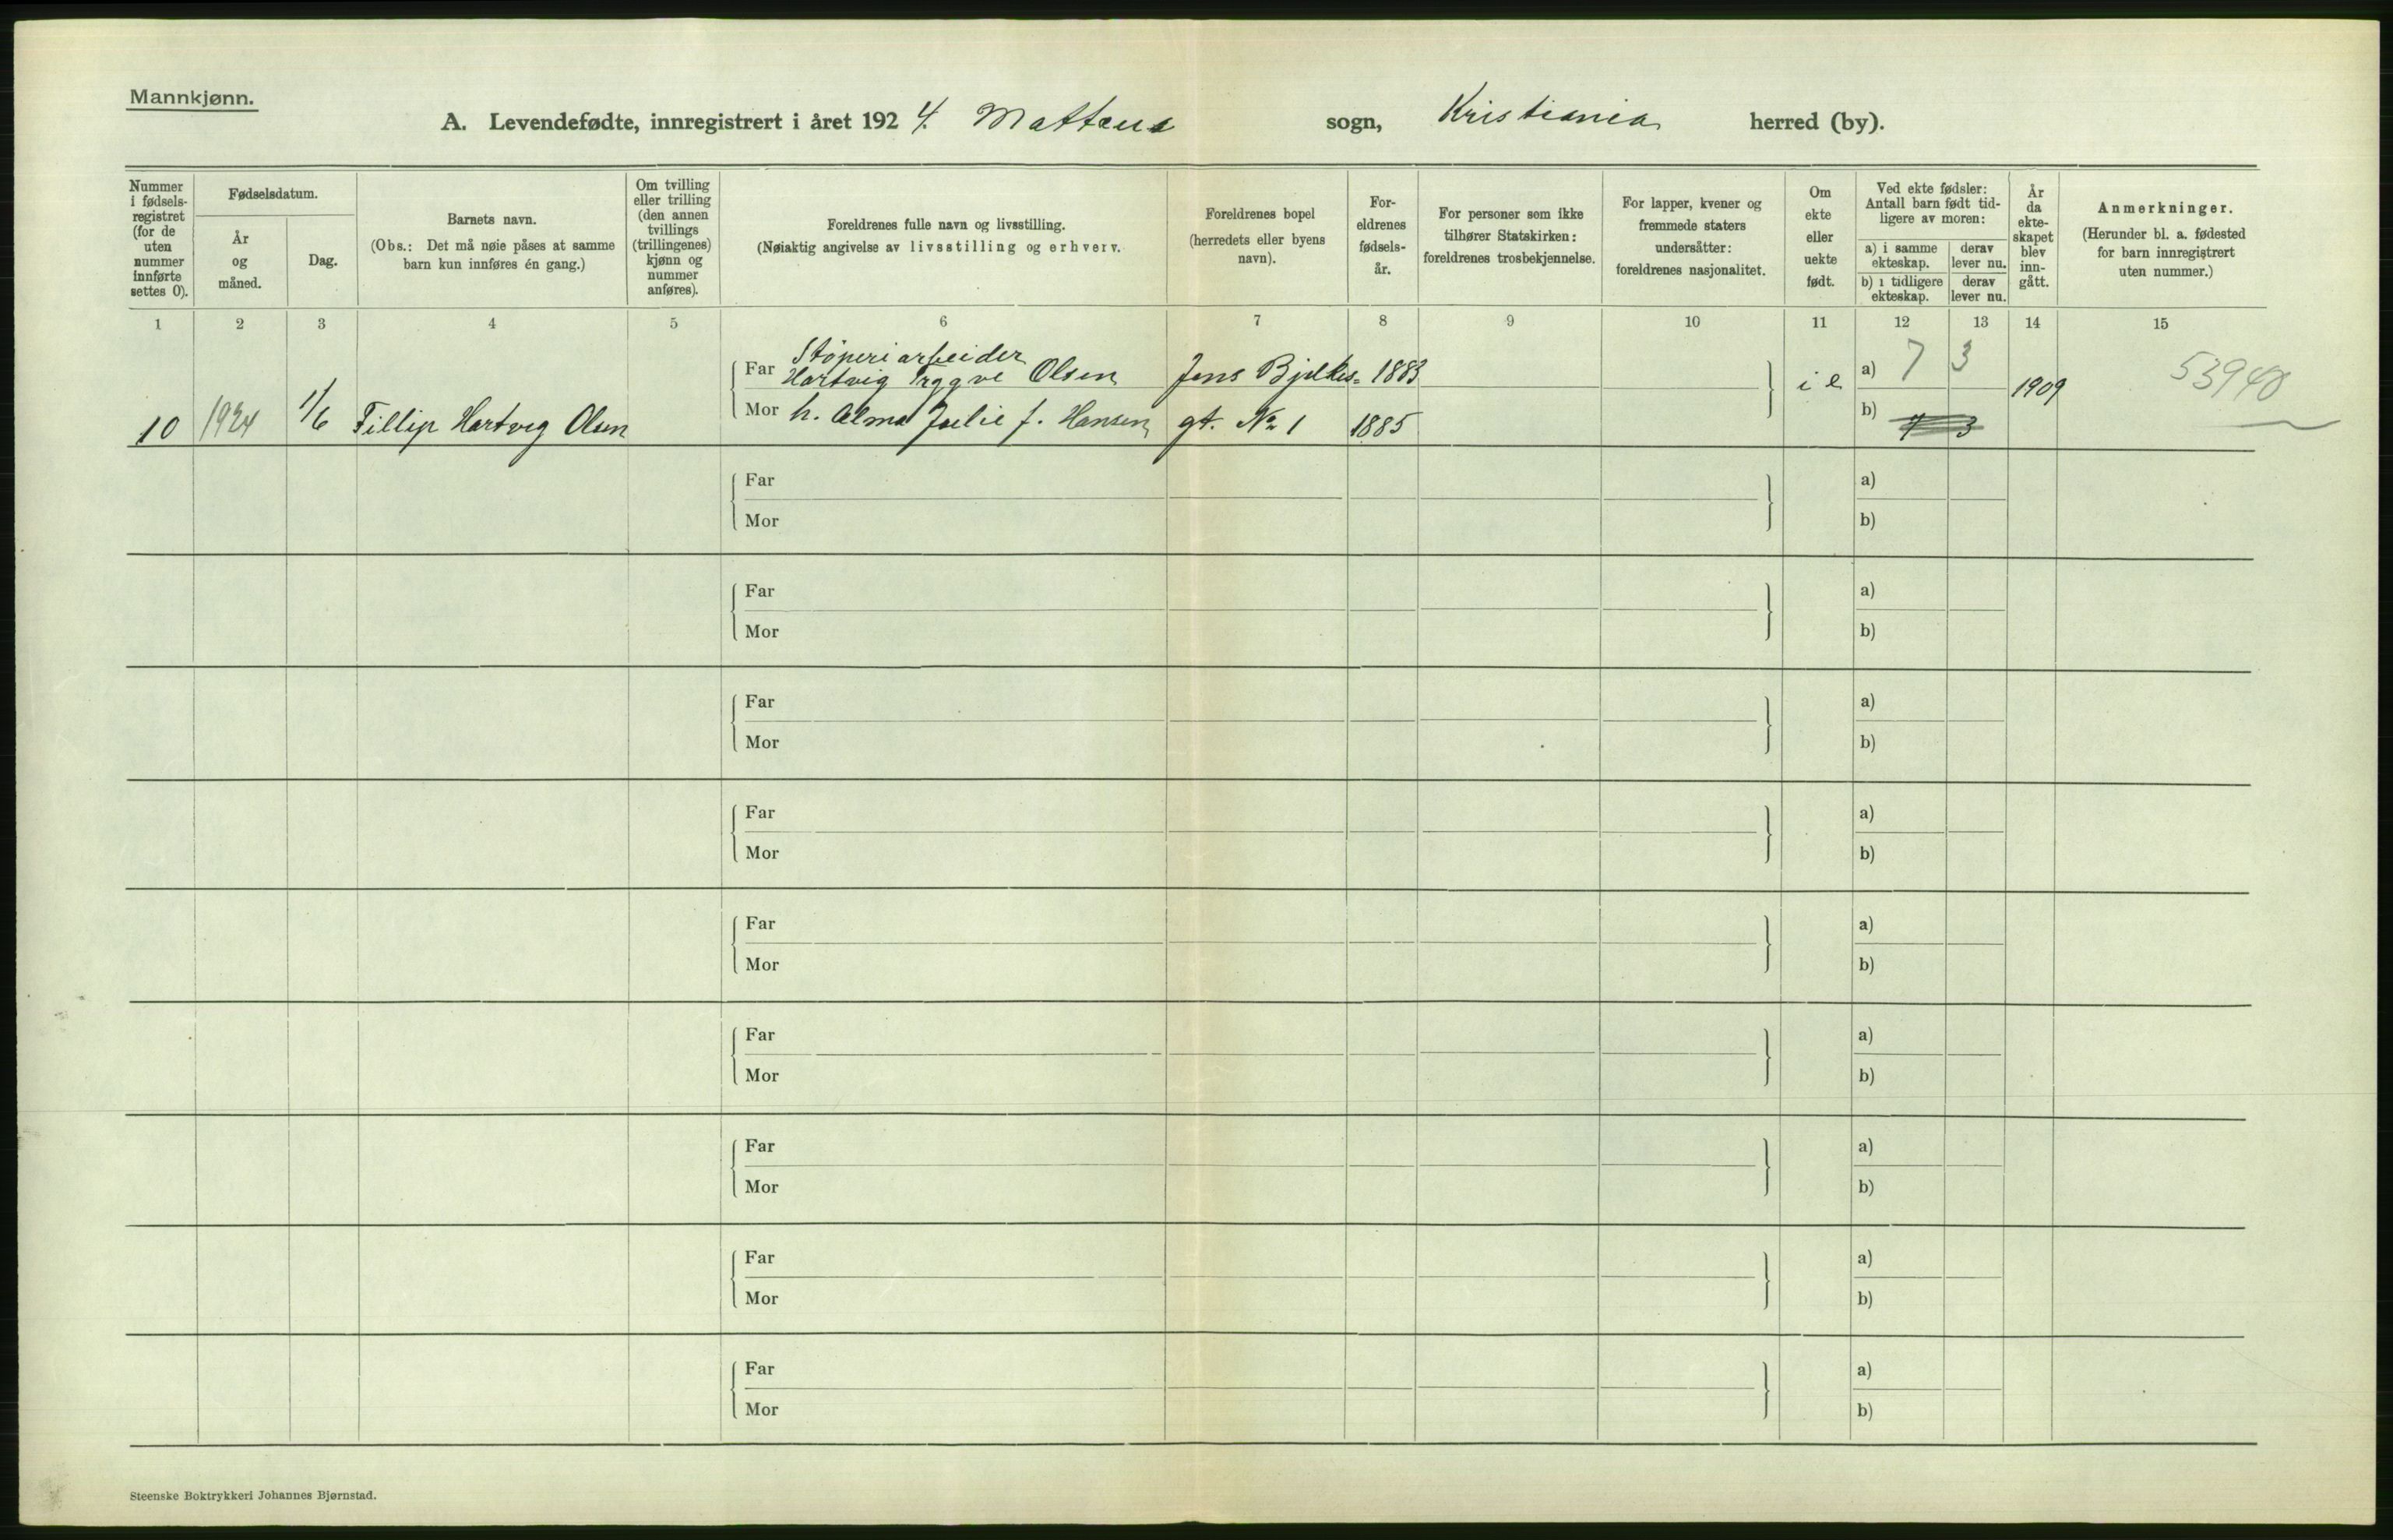 Mannkjønn.
A. Levendefødte, innregistrert i året 1924. Matteus sogn, Kristiania herred (by).
Nummer
i fødsels-
registret
(for de
uten
nummer
innførte
settes 0).
Fødselsdatum.
År
og
måned.
Dag.
Barnets navn.
(Obs.: Det må nøie påses at samme
barn kun innføres én gang.)
Om tvilling
eller trilling
(den annen
tvillings
(trillingenes)
kjønn og
nummer
anføres).
Foreldrenes fulle navn og livsstilling.
(Nøiaktig angivelse av livsstilling og erhverv.
Foreldrenes bopel
(herredets eller byens
navn).
For-
eldrenes
fødsels-
år.
For personer som ikke
tilhører Statskirken:
foreldrenes trosbekjennelse.
For lapper, kvener og
fremmede staters
undersåtter:
foreldrenes nasjonalitet.
Om
ekte
eller
uekte
født.
Ved ekte fødsler:
Antall barn født tid-
ligere av moren:
a) i samme
ekteskap.
derav
lever nu.
b) i tidligere
ekteskap.
derav
lever nu.
År
da
ekte-
skapet
blev
inn-
gått.
Anmerkninger.
(Herunder bl. a. fødested
for barn innregistrert
uten nummer.)
1 2 3 4 5 6 7 8 9 10 11 12 13 14 15
Støperiarbeider
Far Hartvig Tryggve Olsen Jens Bjelkes- 1883 a) 7 3
10 1924 1/6 Fillip Hartvig Olsen Mor h. Alma Julie f. Hansen gt. No 1 1885 i e b) 7 3 1909 53940
Far a)
Mor b)
Far a)
Mor b)
Far a)
Mor b)
Far a)
Mor b)
Far a)
Mor b)
Far a)
Mor b)
Far a)
Mor b)
Far a)
Mor b)
Far a)
Mor b)
Steenske Boktrykkeri Johannes Bjørnstad.